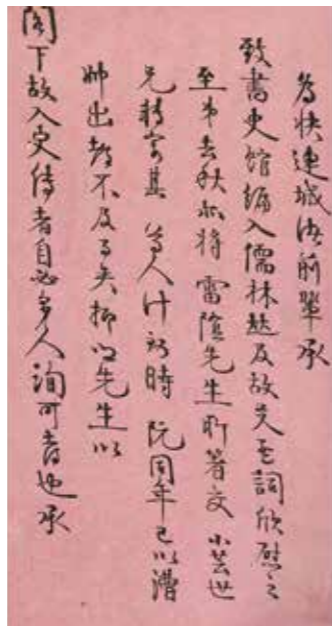 為快連城修前輩承
致書史館編入儒林趙及故先至詞欣慰之
至弟去秋亦將雷陰先生所著交小芸世
兄轉寄其為人計前時阮同年已以漕
帥出都不及事矣抑以先生以
閣下故入史傳者自必多人詢可者也承